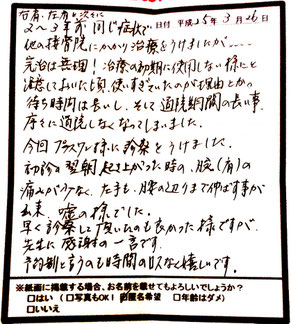 右肩、左肩と次々に
2〜3年前 同じ症状で 日付 平成25年3月26日
他の接骨院にかかり治療をうけましたが……
完治は無理!治療の初期に使用しない様にと
注意しておいた頃、使いすぎていたのが理由とか。
待ち時間は長いし、そして通院期間の長い事
序々に通院しなくなってしまいました。
今回プラスワン様に診察をうけました。
初診の翌朝起き上がった時の、腕(肩)の
痛みが少なく、左手も、腰の辺りまで伸ばす事が
出来、嘘の様でした。
早く診察して頂いたのも良かった様ですが、
先生に感謝の一言です。
予約制と言うのも時間のロスなく嬉しいです。
※紙面に掲載する場合、お名前を載せてもよろしいでしょうか?
□はい(□写真もOK! ☑匿名希望 □年齢はダメ)
□いいえ